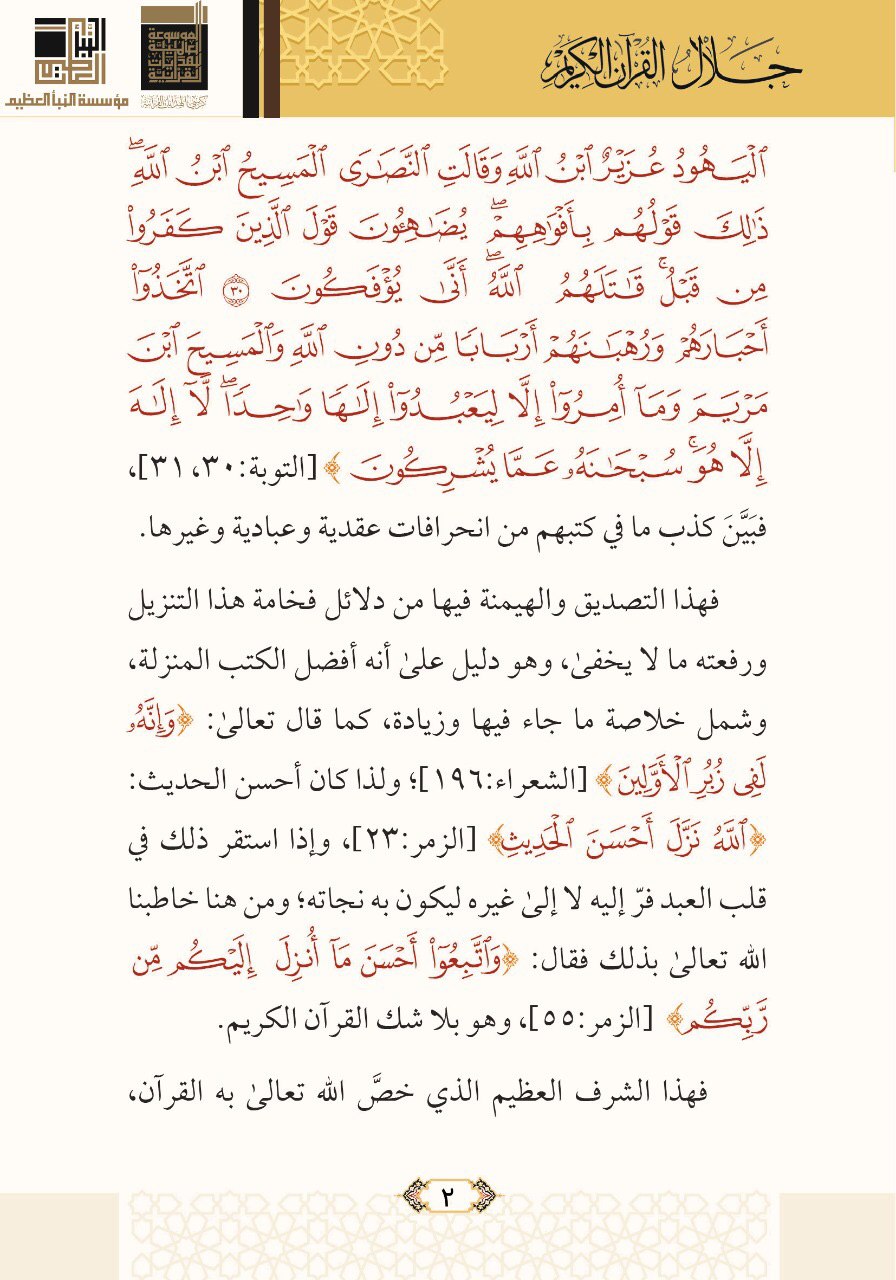 جلال القرآن الكريم
مؤسسة النبأ العظيم
ٱلۡيَهُودُ عُزَيۡرٌ ٱبۡنُ ٱللَّهِ وَقَالَتِ ٱلنَّصَٰرَى ٱلۡمَسِيحُ ٱبۡنُ ٱللَّهِۖ
ذَٰلِكَ قَوۡلُهُم بِأَفۡوَٰهِهِمۡۖ يُضَٰهِـُٔونَ قَوۡلَ ٱلَّذِينَ كَفَرُواْ
مِن قَبۡلُۚ قَٰتَلَهُمُ ٱللَّهُۖ أَنَّىٰ يُؤۡفَكُونَ ٣٠ ٱتَّخَذُوٓاْ
أَحۡبَارَهُمۡ وَرُهۡبَٰنَهُمۡ أَرۡبَابٗا مِّن دُونِ ٱللَّهِ وَٱلۡمَسِيحَ ٱبۡنَ
مَرۡيَمَ وَمَآ أُمِرُوٓاْ إِلَّا لِيَعۡبُدُوٓاْ إِلَٰهٗا وَٰحِدٗاۖ لَّآ إِلَٰهَ
إِلَّا هُوَۚ سُبۡحَٰنَهُۥ عَمَّا يُشۡرِكُونَ ﴾ [التوبة:٣٠، ٣١]،
فبَيَّنَ كذب ما في كتبهم من انحرافات عقدية وعبادية وغيرها.
فهذا التصديق والهيمنة فيها من دلائل فخامة هذا التنزيل
ورفعته ما لا يخفىٰ، وهو دليل علىٰ أنه أفضل الكتب المنزلة،
وشمل خلاصة ما جاء فيها وزيادة، كما قال تعالىٰ: ﴿وَإِنَّهُۥ
لَفِي زُبُرِ ٱلۡأَوَّلِينَ﴾ [الشعراء:١٩٦]؛ ولذا كان أحسن الحديث:
﴿ٱللَّهُ نَزَّلَ أَحۡسَنَ ٱلۡحَدِيثِ﴾ [الزمر:٢٣]، وإذا استقر ذلك في
قلب العبد فرّ إليه لا إلىٰ غيره ليكون به نجاته؛ ومن هنا خاطبنا
الله تعالىٰ بذلك فقال: ﴿وَٱتَّبِعُوٓاْ أَحۡسَنَ مَآ أُنزِلَ إِلَيۡكُم مِّن
رَّبِّكُم﴾ [الزمر:٥٥]، وهو بلا شك القرآن الكريم.
فهذا الشرف العظيم الذي خصَّ الله تعالىٰ به القرآن،
٢